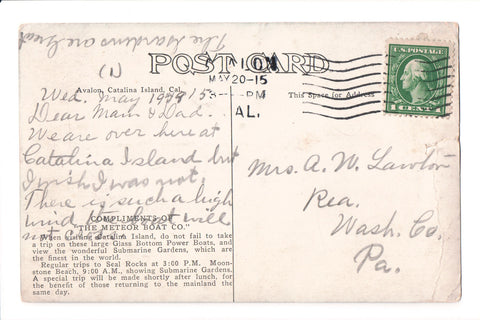 The Gardens are Great
POST CARD
(1)
AVALON
MAY 20-15
3-PM
CAL.
U.S. POSTAGE
1 CENT 1
Avalon, Catalina Island, Cal.
This Space for Address
Wed. May 19 15
Dear Mam & Dad.
We are over here at
Catalina Island but
I wish I was not.
There is such a high
wind the boat will
not
COMPLIMENTS OF
"THE METEOR BOAT CO."
When visiting Catalina Island, do not fail to take
a trip on these large Glass Bottom Power Boats, and
view the wonderful Submarine Gardens, which are
the finest in the world.
Regular trips to Seal Rocks at 3:00 P.M. Moon-
stone Beach, 9:00 A.M., showing Submarine Gardens.
A special trip will be made shortly after lunch, for
the benefit of those returning to the mainland the
same day.
Mrs. A. W. Lawton
Rea.
Wash. Co.
Pa.